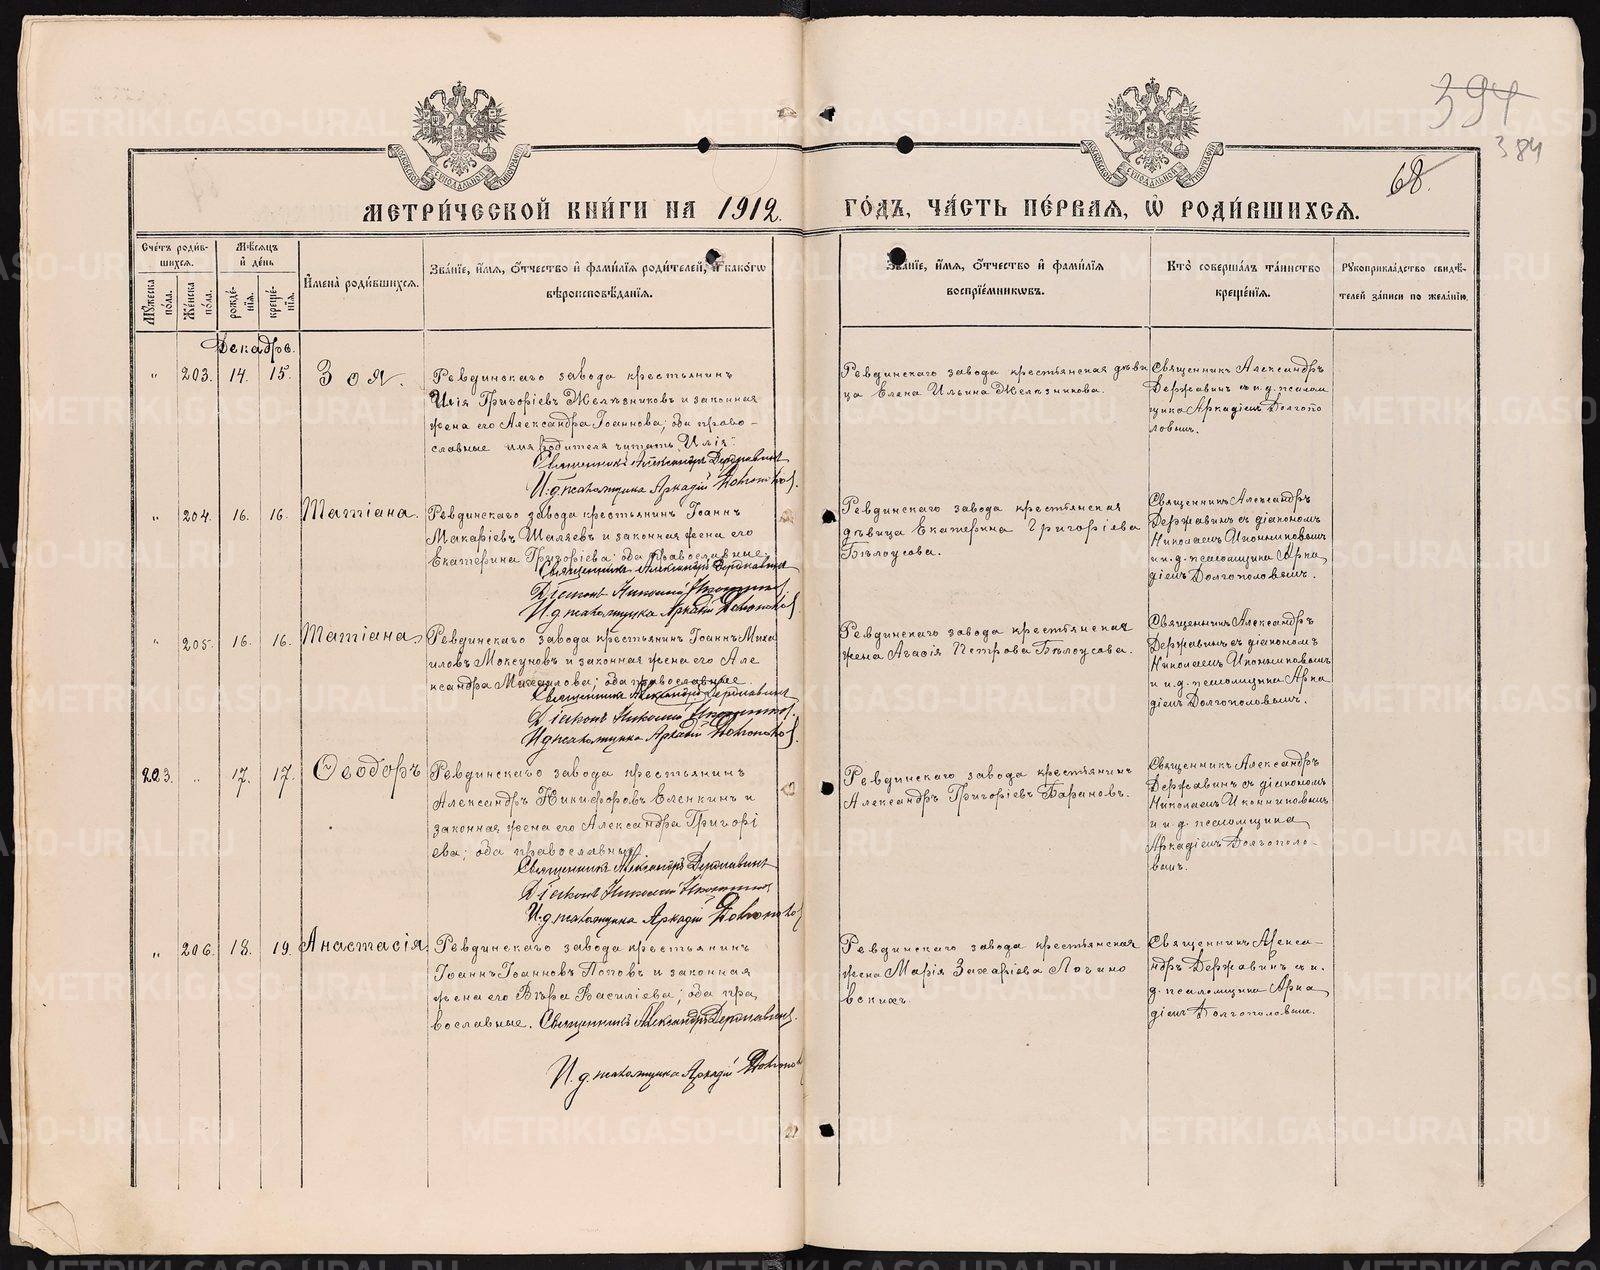 394
384
68.
МЕТРИ́ЧЕСКОЙ КНИ́ГИ НА 1912. ГО́ДЪ, ЧА́СТЬ ПЕ́РВАЯ, Ѡ РОДИ́ВШИХСЯ.
Сче́тъ роди́в-
шихся.
Мꙋ́жеска
по́ла.
Же́нска
по́ла.
Мѣ́сяцъ
и҆ де́нь
рожде́-
нїѧ.
креще́-
нїѧ.
И҆мена̀ роди́вшихся.
Зва́нїе, и҆́мя, ѻ҆́тчество и҆ фамі́лїя роди́телей, и҆ како́гѡ
вѣроисповѣ́данїя.
Зва́нїе, и҆́мя, ѻ҆́тчество и҆ фамі́лїя
воспрїе́мникѡвъ.
Кто̀ соверша́лъ та́инство
креще́нїя.
Рꙋкоприкла́дство свидѣ́-
телей за́писи по жела́нїю.
Декабрь.
" 203. 14. 15. Зоя.
Ревдинскаго завода крестьянинъ
Илія Григоріевъ Желѣзниковъ и законная
жена его Александра Іоаннова; оба право-
славные имя родителя читать „Илія“.
Священникъ Александръ Державинъ
И. д. псаломщика Аркадій Долгополов.
Ревдинскаго завода крестьянская дѣви
ца Елена Ильина Желѣзникова.
Священникъ Александръ
Державинъ съ и. д. псалом
щика Аркадіемъ Долгопо
ловымъ.
" 204. 16. 16. Татіана.
Ревдинскаго завода крестьянинъ Іоаннъ
Макаріевъ Шаляевъ и законная жена его
Екатерина Григоріева; оба православные.
Священникъ Александръ Державинъ
Діаконъ Николай
И. д. псаломщика Аркадій Долгополов.
Ревдинскаго завода крестьянская
дѣвица Екатерина Григоріева
Бѣлоусова.
Священникъ Александръ
Державинъ съ діакономъ
Николаемъ Иконниковымъ
и и. д. псаломщика Арка
діемъ Долгополовымъ.
" 205. 16. 16. Татіана.
Ревдинскаго завода крестьянинъ Іоаннъ Миха
иловъ Моксуновъ и законная жена его Але
ксандра Михаилова; оба православные.
Священникъ Александръ Державинъ
Діаконъ Николай
И. д. псаломщика Аркадій Долгополов.
Ревдинскаго завода крестьянская
жена Агафія Петрова Бѣлоусова.
Священникъ Александръ
Державинъ съ діакономъ
Николаемъ Иконниковымъ
и и. д. псаломщика Арка
діемъ Долгополовымъ.
203. " 17. 17. Ѳеодоръ
Ревдинскаго завода крестьянинъ
Александръ Никифоровъ Еленкинъ и
законная жена его Александра Григорі
ева; оба православные.
Священникъ Александръ Державинъ
Діаконъ Николай
И. д. псаломщика Аркадій Долгополов
Ревдинскаго завода крестьянинъ
Александръ Григоріевъ Барановъ.
Священникъ Александръ
Державинъ съ діакономъ
Николаемъ Иконниковымъ
и и. д. псаломщика
Аркадіемъ Долгополо-
вымъ.
" 206. 18. 19. Анастасія.
Ревдинскаго завода крестьянинъ
Іоаннъ Іоанновъ Поповъ и законная
жена его Вѣра Василіева; оба пра
вославные. Священникъ Александръ Державинъ.
И. д. псаломщика Аркадій Долгопол
Ревдинскаго завода крестьянская
жена Марія Захаріева Логино
вскихъ.
Священникъ Алекса-
ндръ Державинъ съ и.
д. псаломщика Арка
діемъ Долгополовымъ.
METRIKI.GASO-URAL.RU